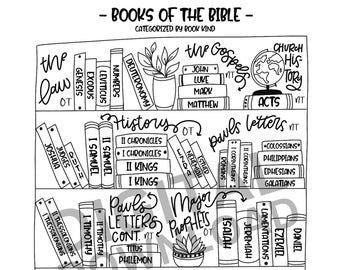 - BOOKS OF THE BIBLE -
CATEGORIZED BY BOOK KIND
the Law
OT
GENESIS
EXODUS
LEVITICUS
NUMBERS
DEUTERONOMY
the Gospels
NT
JOHN
LUKE
MARK
MATTHEW
CHURCH HISTORY
NT
ACTS
History
OT
JOSHUA
JUDGES
I SAMUEL
II SAMUEL
II CHRONICLES
I CHRONICLES
II KINGS
I KINGS
EZRA
ESTHER
pauls letters
NT
ROMANS
I CORINTHIANS
II CORINTHIANS
COLOSSIANS
PHILIPPIANS
EPHESIANS
GALATIANS
I THESSALONIANS
II THESSALONIANS
I TIMOTHY
II TIMOTHY
Pauls LETTERS CONT.
NT
TITUS
PHILEMON
Major Prophets
OT
ISAIAH
JEREMIAH
LAMENTATIONS
EZEKIEL
DANIEL
DOWNLOAD